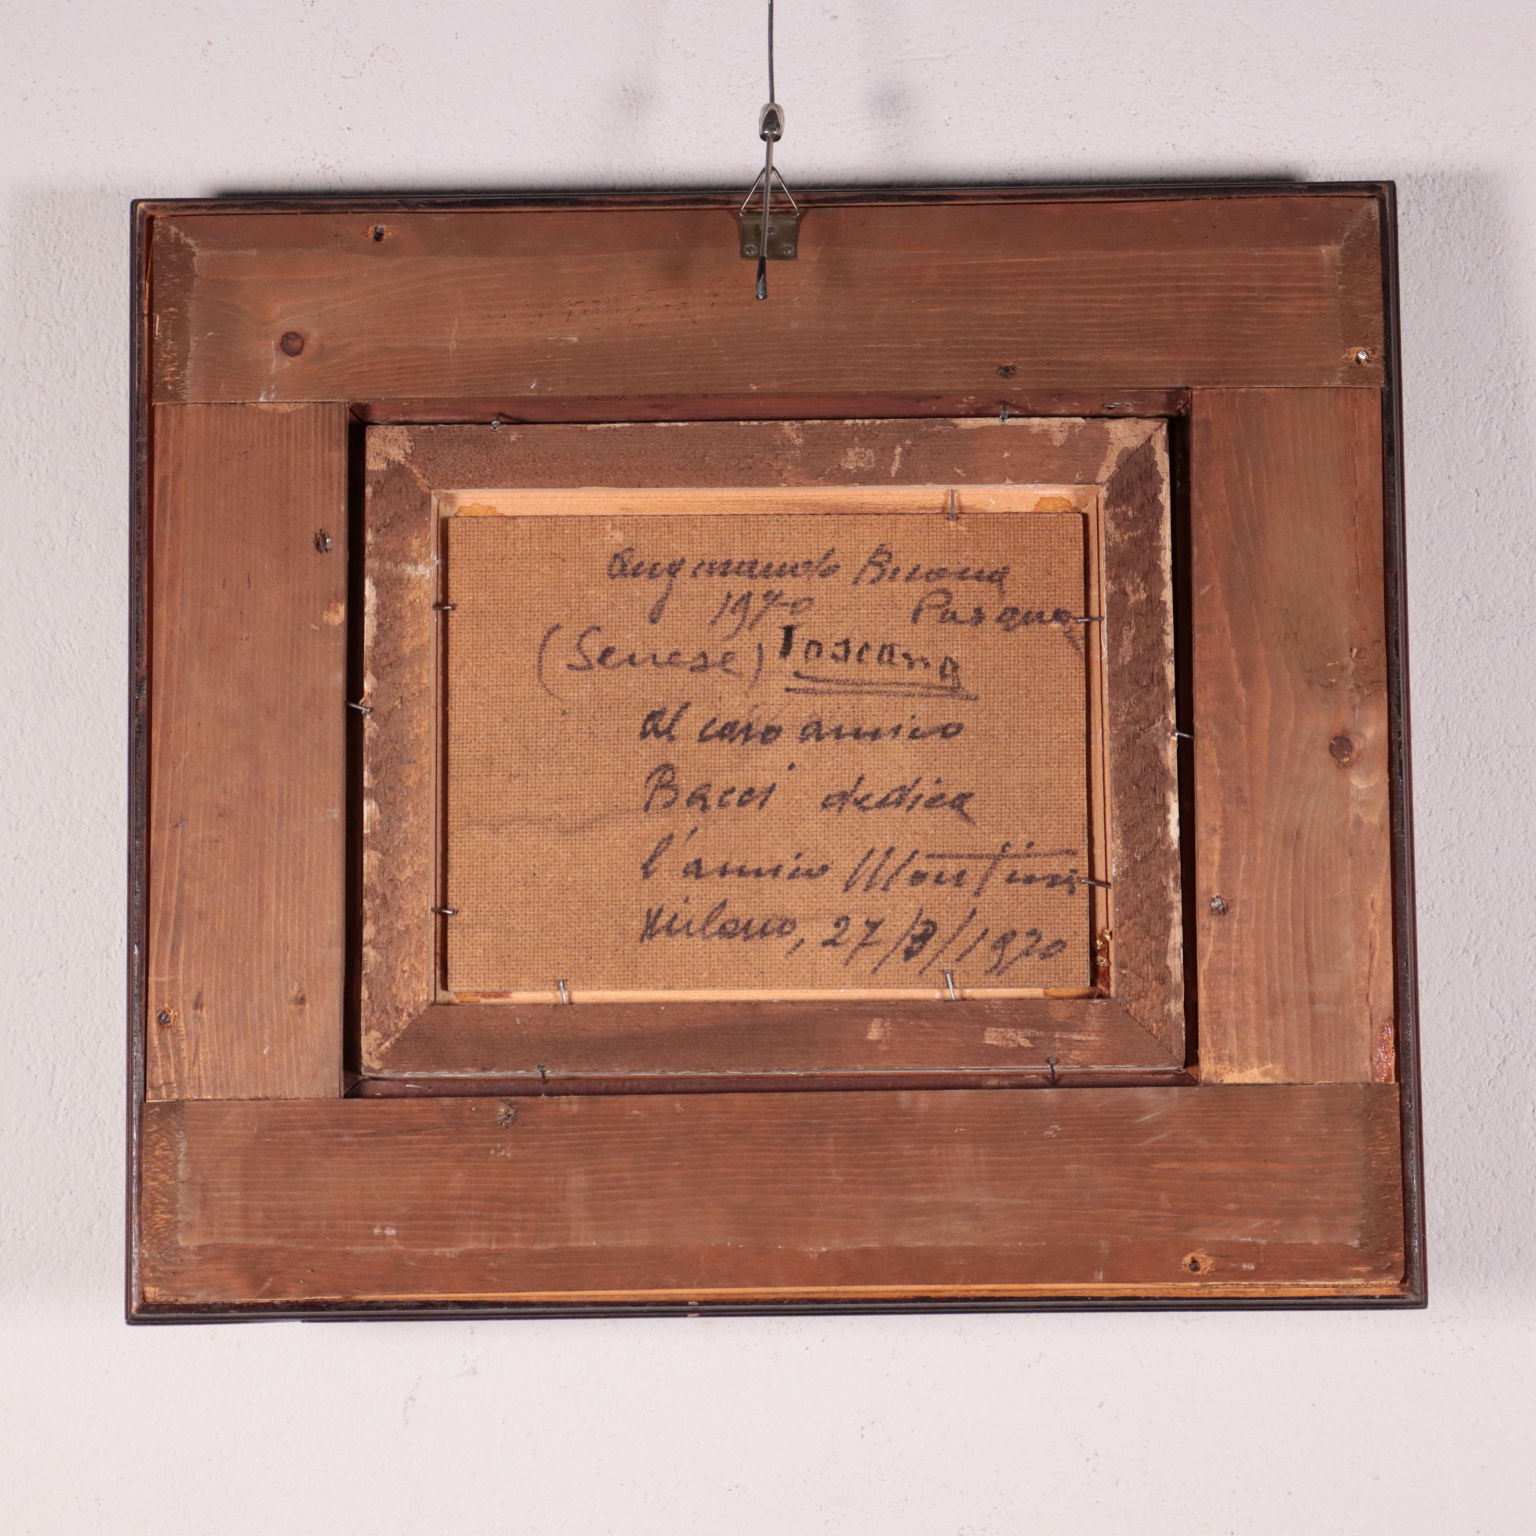 Augurando Buona
1970 Pasqua
(Senese) Toscana
al caro amico
Bacci dedica
l'amico Montini
Milano, 27/3/1970